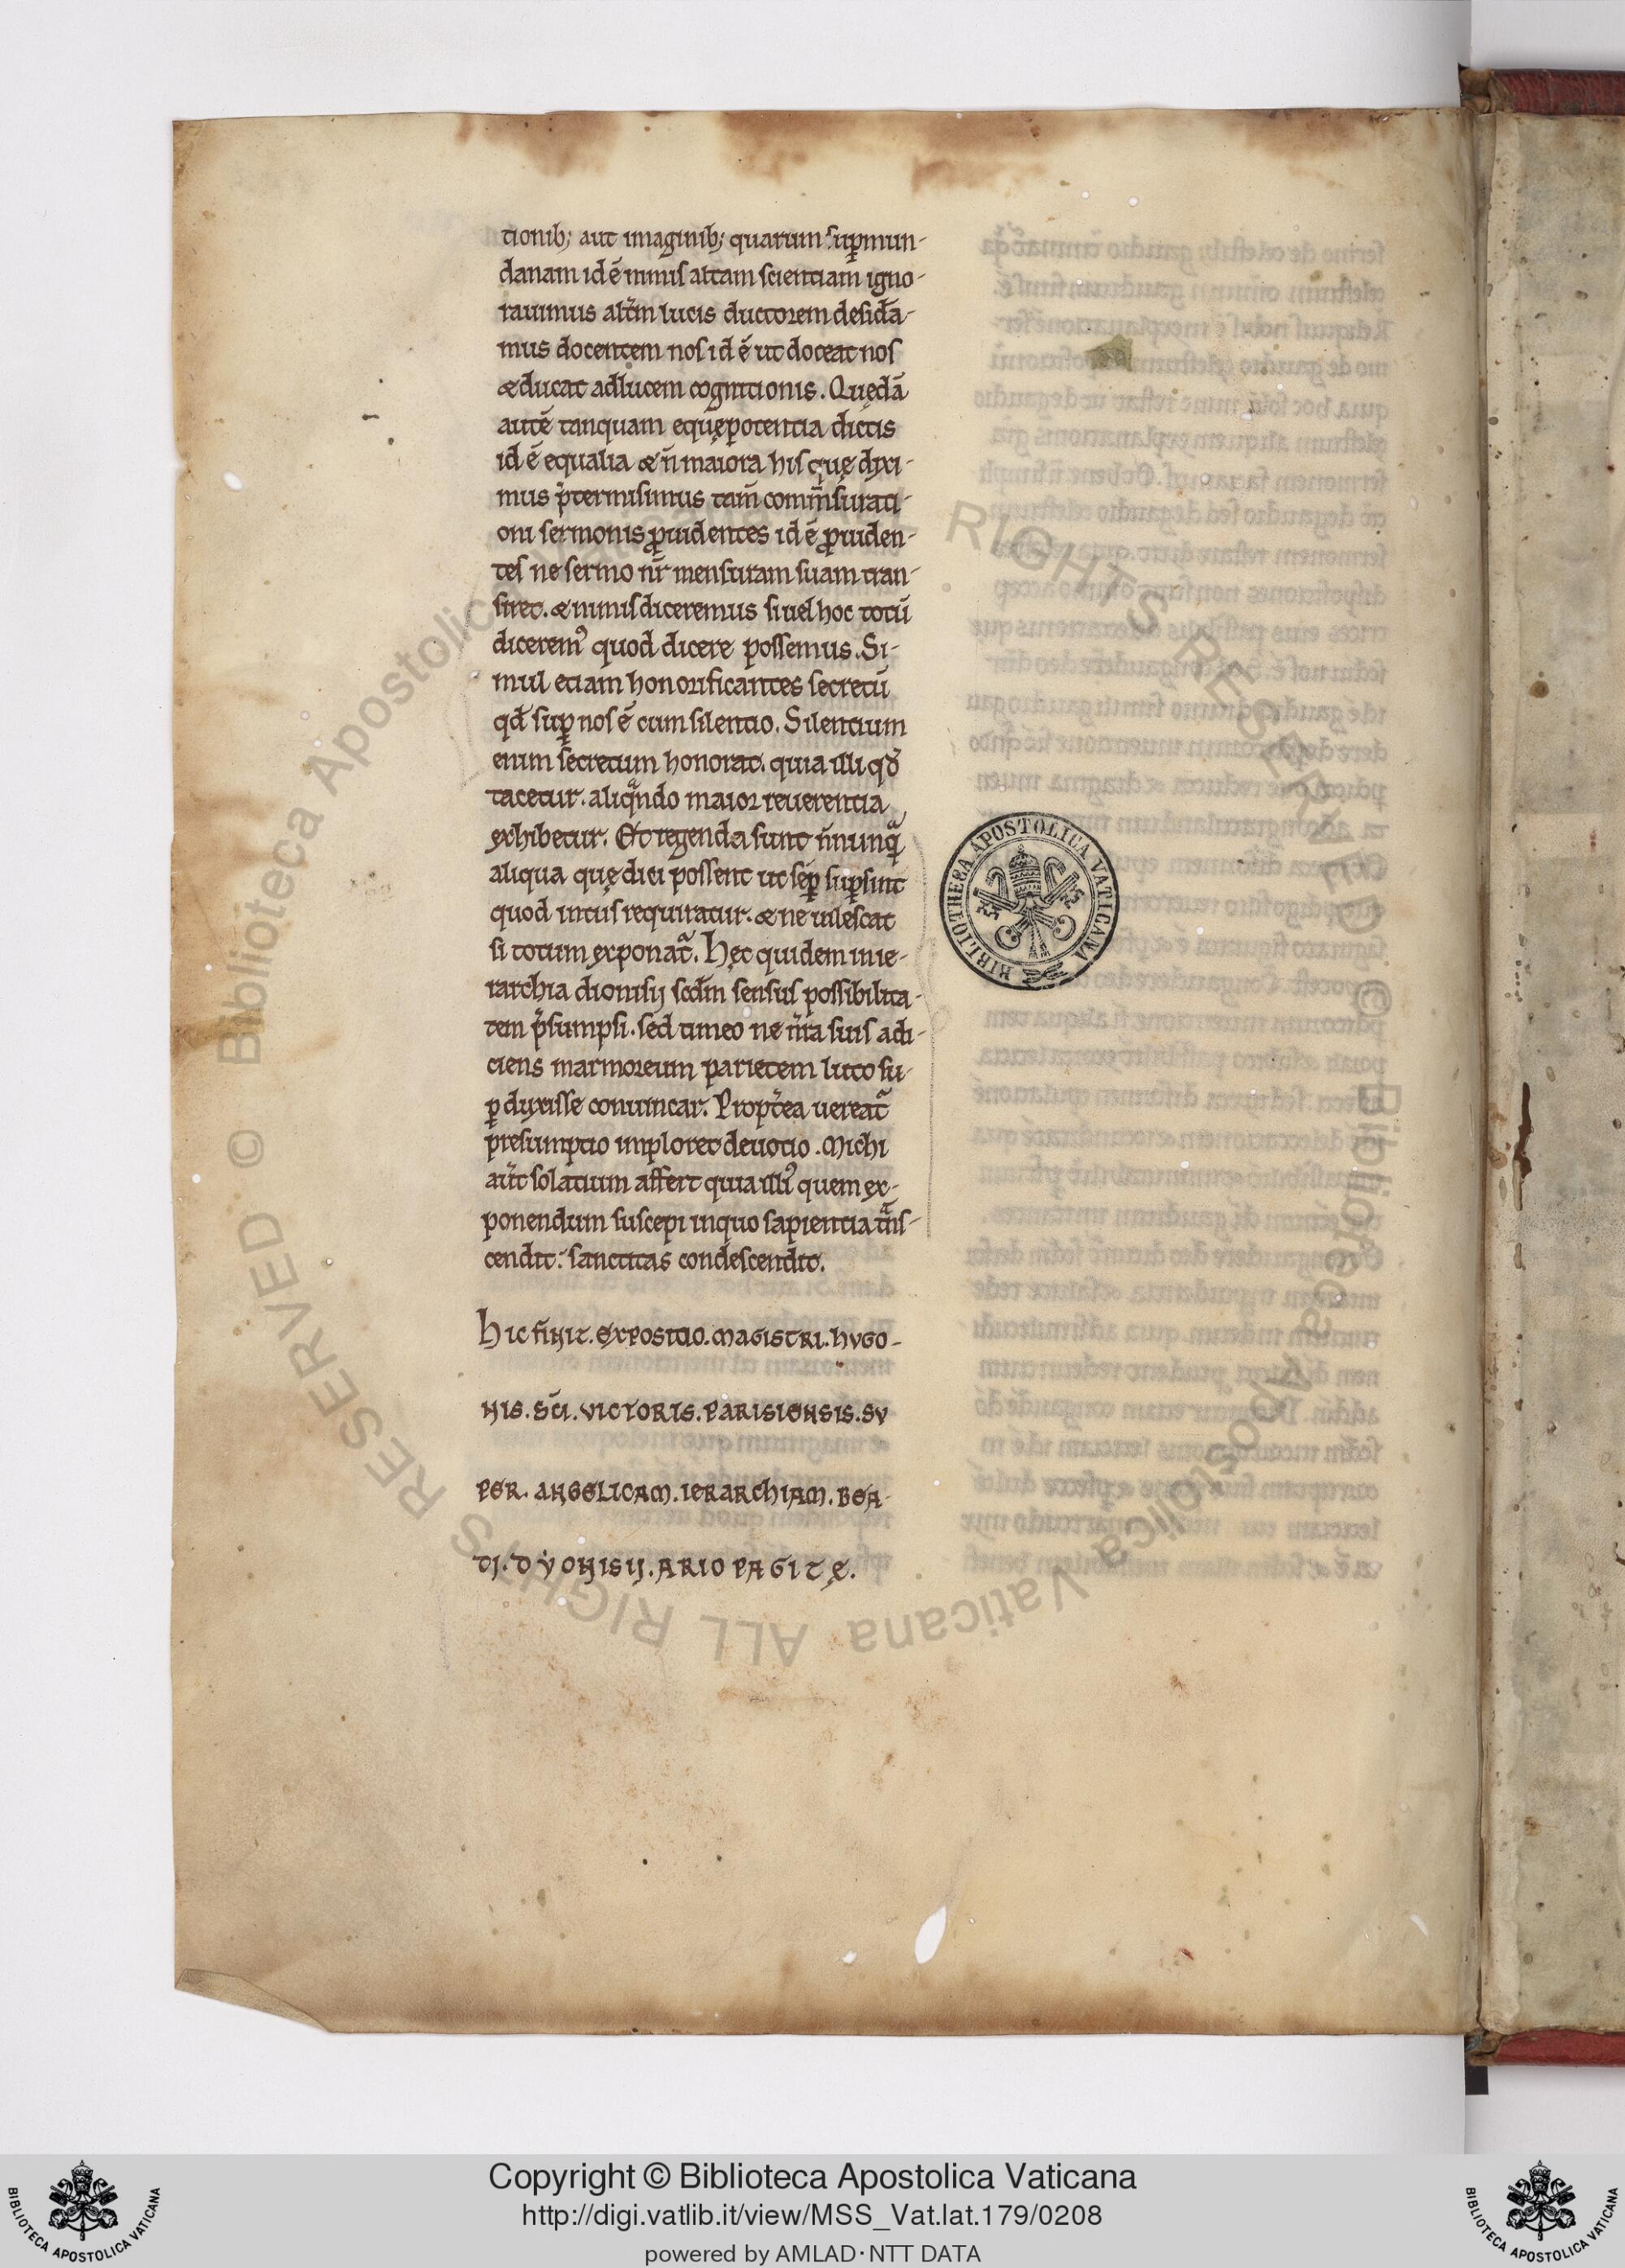 tionib; aut imaginib; quarum sup̲mun-
danam id ē nimis altam scientiam igno-
rauimus alt̄m lucis ductorem desid̄a-
mus docentem nos id ē ut doceat nos
& ducat ad lucem cognitionis. Quędā
autē tanquam equępotentia dictis
id ē equalia & n̄ maiora his quę dixi-
mus p̄termisimus tam̄ comm̄surati-
oni sermonis prouidentes id ē prouiden-
tes ne sermo nr̄ mensuram suam tran-
siret. & nimis diceremus si uel hoc totū
dicerem᾽ quod dicere possemus. Si-
mul etiam honorificantes secretū
qd̄ sup̲ nos ē cum silentio. Silentium
enim secretum honorat. quia illi qd̄
tacetur. aliqᵃndo maior reuerentia
exhibetur. Et tegenda sunt n̄nunqᵃ̄
aliqua quę dici possent ut sēp̲ sup̲sint
quod intus requiratur. & ne uilescat
si totum exponat᷑. Hęc quidem in ie-
rarchia dionisij scd̄m sensus possibilita-
tem p̄sumpsi. sed timeo ne nr̄a suis adi-
ciens marmoreum parietem luto su-
p̲duxisse conuincar. Propt̄ea uereat᷑
presumptio imploret deuotio. Michi
aūt solatium affert quia illi᾽ quem ex-
ponendum suscepi in quo sapientia tᵃns-
cendit: sanctitas condescendit.
Hic finit. expositio. magistri. hugo-
nis. sc̄i. victoris. parisiensis. su
per. angelicam. ierarchiam. bea-
ti. dẏonisij. ariopagitę.
BIBLIOTHECA APOSTOLICA VATICANA
© Biblioteca Apostolica Vaticana ALL RIGHTS RESERVED
Copyright © Biblioteca Apostolica Vaticana
http://digi.vatlib.it/view/MSS_Vat.lat.179/0208
powered by AMLAD·NTT DATA
BIBLIOTECA APOSTOLICA VATICANA
BIBLIOTECA APOSTOLICA VATICANA